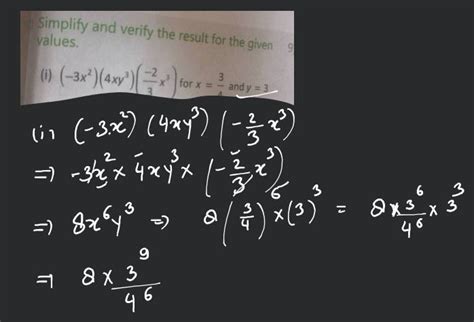 Simplify and verify the result for the given
values.
(i) (-3x²)(4xy³)(-2/3 x³) for x = 3/4 and y = 3
(i) (-3x²) (4xy³) (-2/3 x³)
⇒ -3x² × 4xy³ × (-2/3 x³)
⇒ 8x⁶y³ ⇒ 8(3/4)⁶ × (3)³ = 8 × 3⁶/4⁶ × 3³
⇒ 8 × 3⁹/4⁶